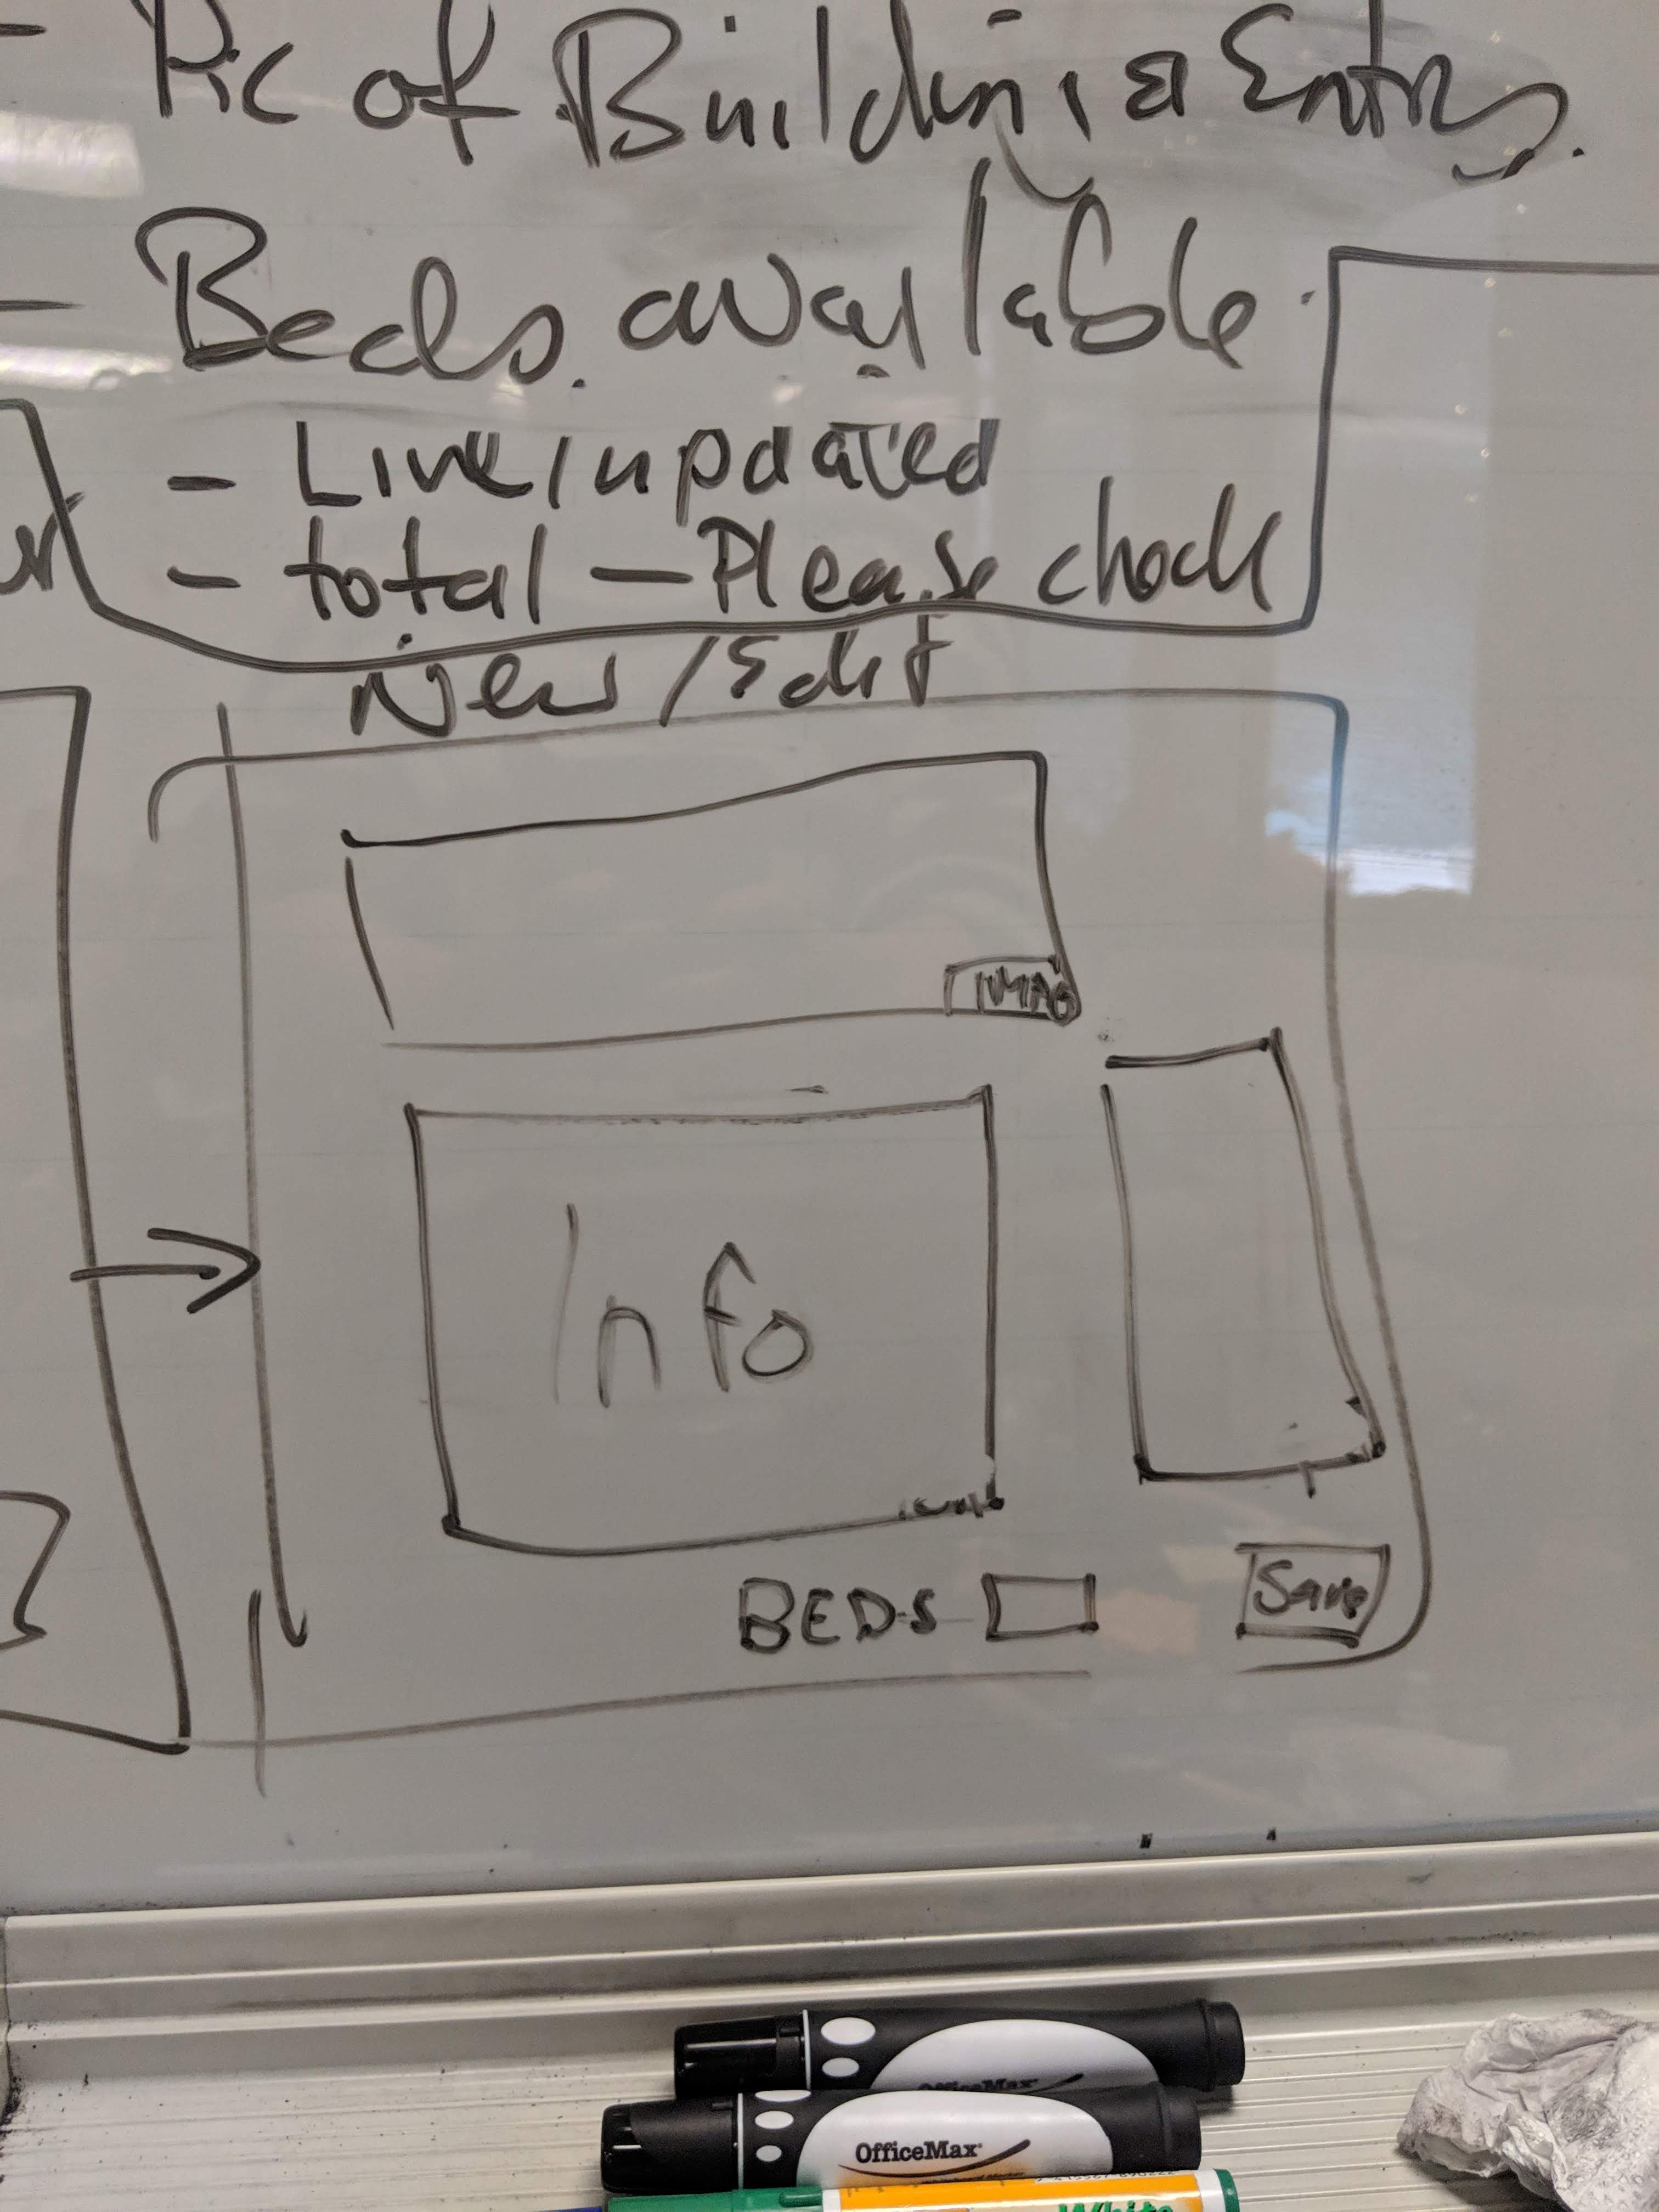 - Pic of Building & Entry.
- Beds available.
- Live/updated
- total - Please check
New/Edit
IMAG
Info
BEDS
Save
OfficeMax
OfficeMax
White